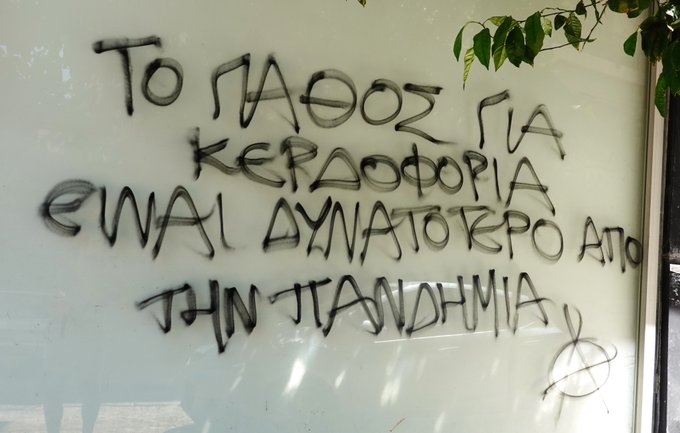 ΤΟ ΠΑΘΟΣ ΓΙΑ
ΚΕΡΔΟΦΟΡΙΑ
ΕΙΝΑΙ ΔΥΝΑΤΟΤΕΡΟ ΑΠΟ
ΤΗΝ ΠΑΝΔΗΜΙΑ